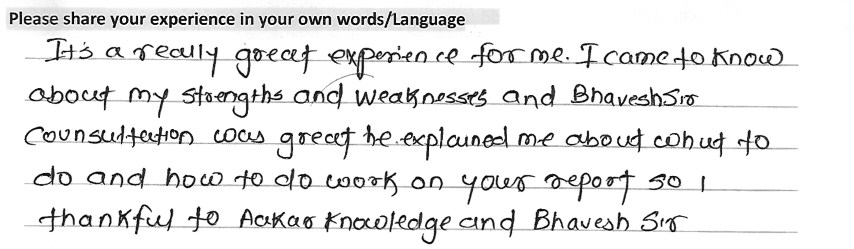 Please share your experience in your own words/Language
It's a really great experience for me. I came to know
about my strengths and weaknesses and Bhavesh Sir
Counsultation was great he explained me about what to
do and how to do work on your report so I
thankful to Aakar Knowledge and Bhavesh Sir